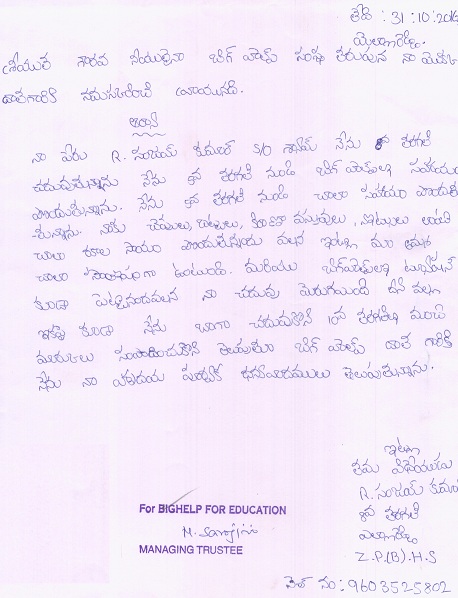 తేది : 31:10:201
యెల్లారెడ్డి.
శ్రీయుత గౌరవ నీయులైనా బిగ్ హెల్ప్ సంస్థ తరుపున నా మొదట
దాతగారికి నమస్కరించి వ్రాయునది.
నా పేరు R. సంజయ్ కుమార్ S/o శ్యామ్ నేను 8వ తరగతి
చదువుతున్నాను నేను 6వ తరగతి నుండి బిగ్ హెల్ప్ సహాయం
పొందుతున్నాను. నేను 6వ తరగతి నుండి చాలా సహాయం పొందు
తున్నాను. నాకు చెప్పులు, బట్టలు, కిరాణా వస్తువులు, నోట్సులు లాంటి
చాలా రకాల సాయం పొందుతున్నాను వలన ఇట్లు మా అమ్మకు
చాలా సంతోషంగా ఉంటుంది. మరియు బిగ్ హెల్ప్ ట్యూషన్
కూడా పెట్టించడంవలన నా చదువు మెరుగయింది దీని వల్ల
ఇకపై కూడా నేను బాగా చదువుకొని 10వ తరగతిలో మంచి
మార్కులు సంపాదించుకొని తెలుపుతూ బిగ్ హెల్ప్ దాత గారికి
నేను నా హృదయ పూర్వక ధన్యవాదములు తెలుపుతున్నాను.
ఇట్లు
తమ విధేయుడు
R. సంజయ్ కుమా
8వ తరగతి
ఎల్లారెడ్డి
Z.P.(B).H.S
సెల్ నం : 9603525802
For BIGHELP FOR EDUCATION
M. Sarojini
MANAGING TRUSTEE